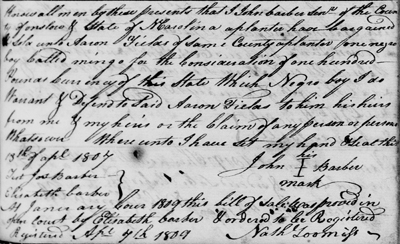 Know all men by these presents that I John Barber Senr. of the County
of onslow & State of N Carolina a planter have bargained
& Sold unto Aaron of Same County a planter one negro
boy Called mingo for the Consideration of one hundred
Pounds Currency of this State Which Negro boy I do
Warrant & Defend to Said Aaron to him his heirs
from me & my heirs or the Claim of any Person or persons
Whatsoever Where unto I have set my hand & Seal this
18th of apl 1807
his
John I Barber
mark
Test Jos Barber
Elizabeth Barber
January Cour 1809 this bill of Sale was proved in
open Court by Elizabeth Barber & ordered to be Registered
Registered Apl. 4th 1809 Nath Loomiss